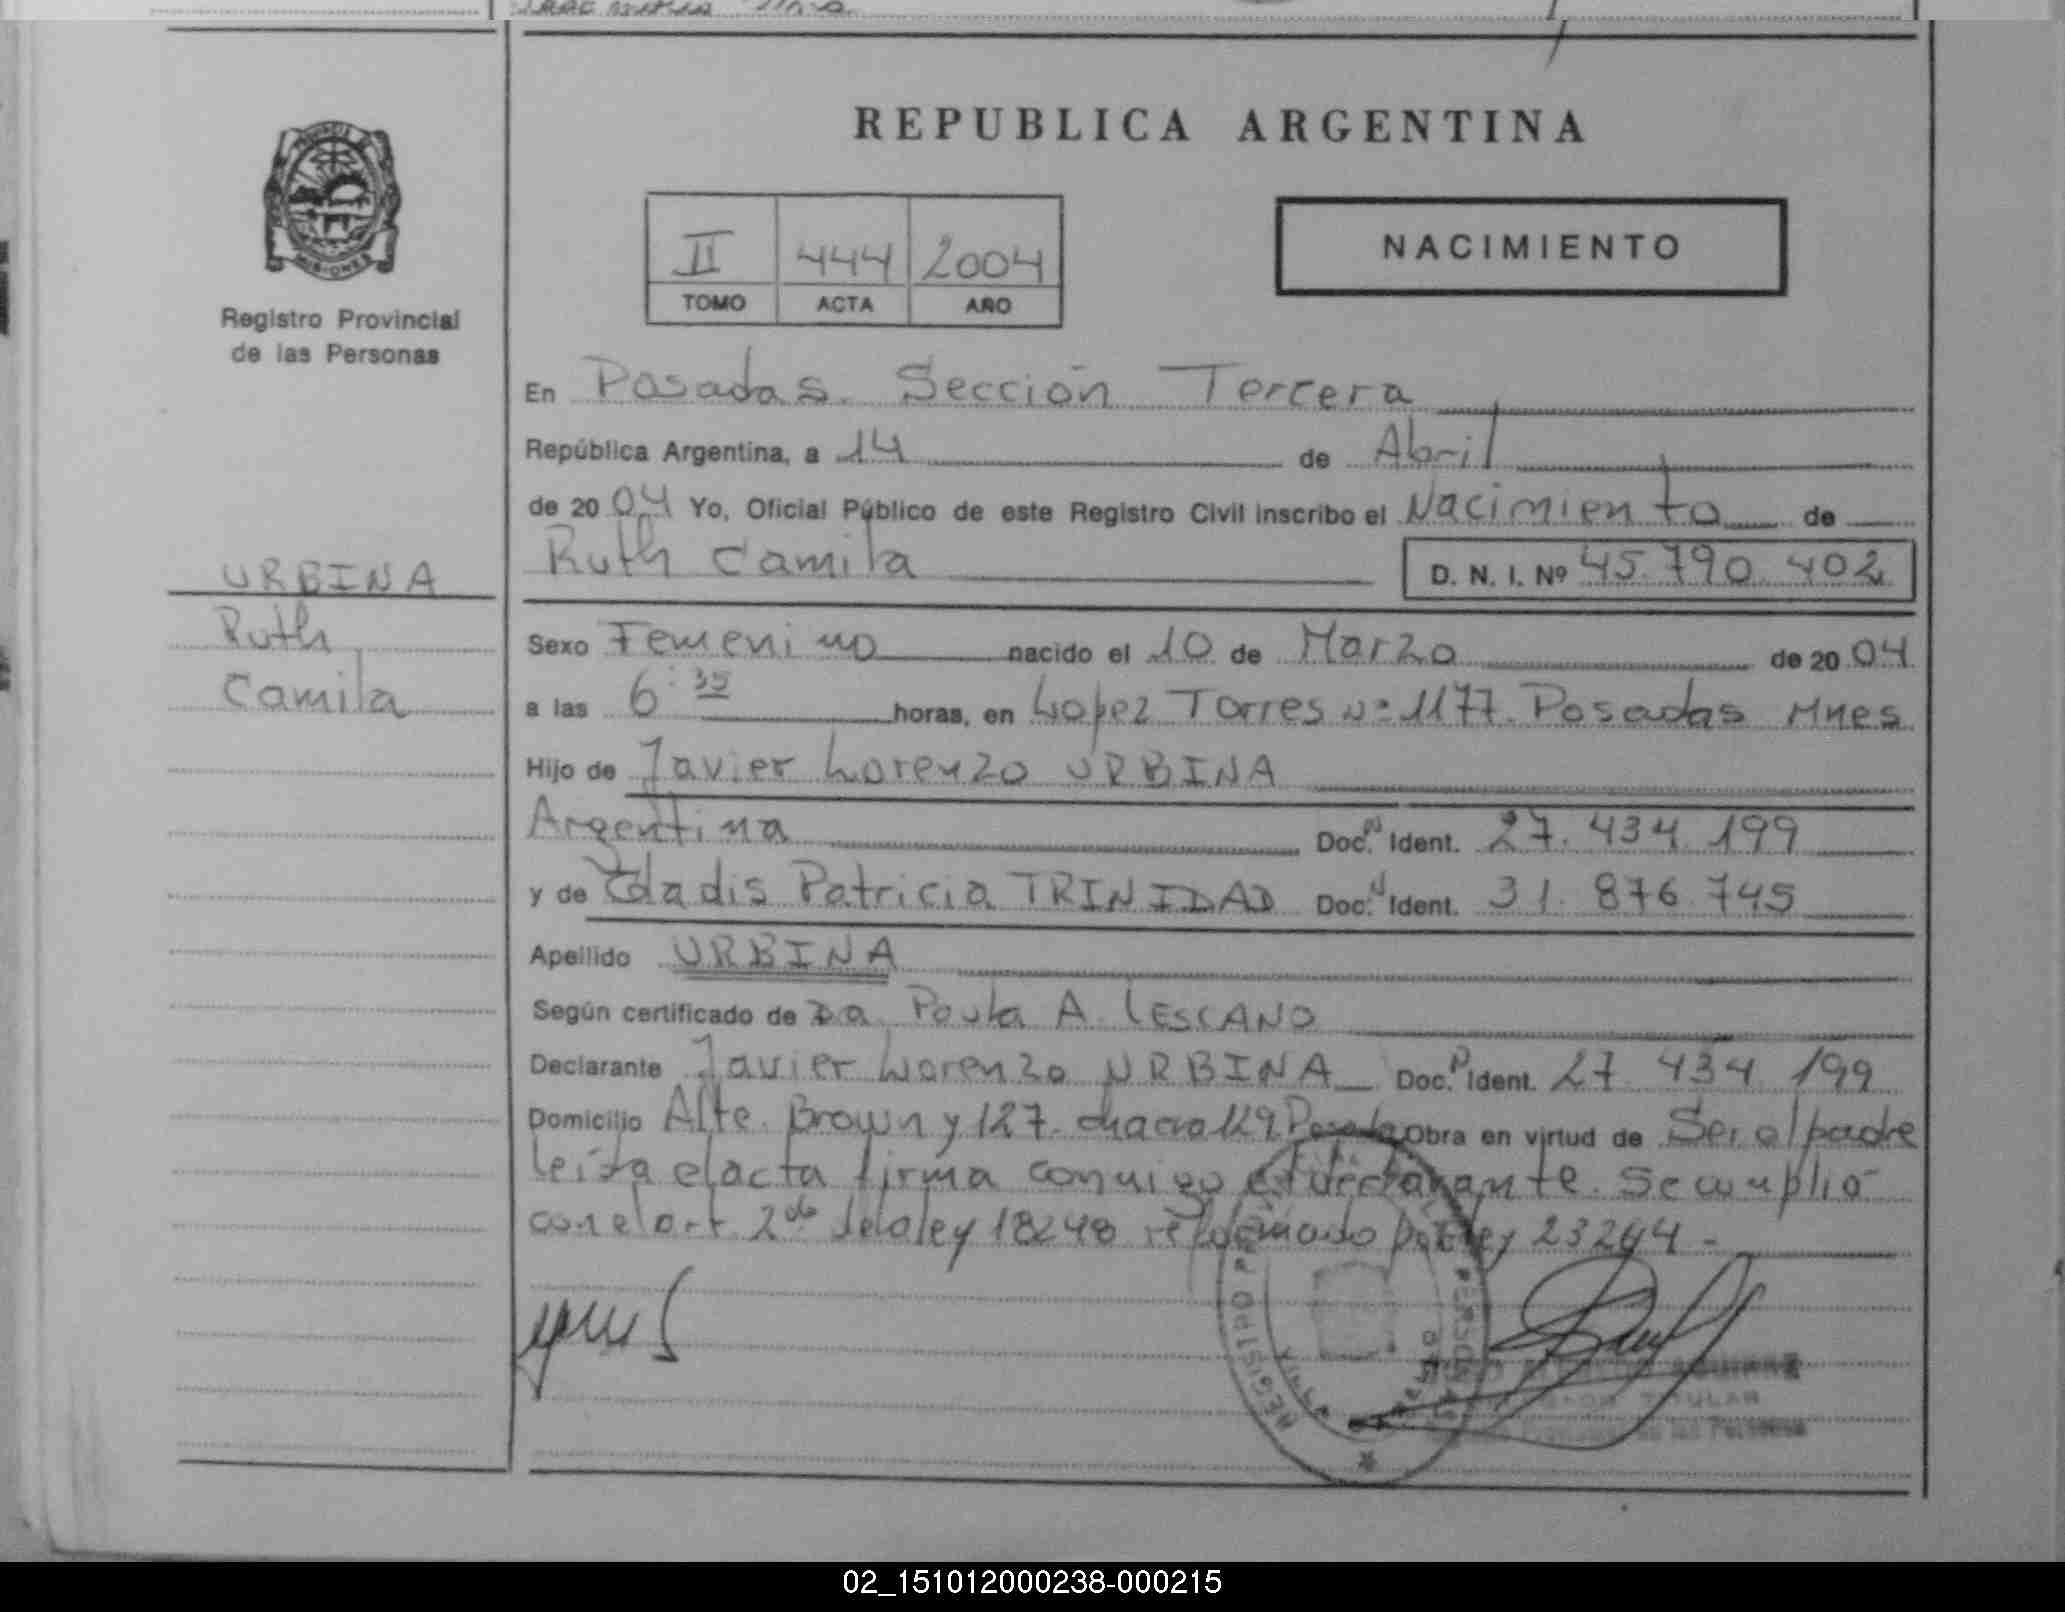 REPUBLICA ARGENTINA
PROVINCIA DE
MISIONES
Registro Provincial
de las Personas
II 444 2004
TOMO ACTA AÑO
NACIMIENTO
En Posadas. Sección Tercera
República Argentina, a 14 de Abril
de 2004 Yo, Oficial Público de este Registro Civil inscribo el Nacimiento de
Ruth Camila D. N. I. Nº 45.790.402
URBINA
Ruth
Camila
Sexo Femenino nacido el 10 de Marzo de 2004
a las 6:35 horas, en Lopez Torres Nº 1177. Posadas Mnes
Hijo de Javier Lorenzo URBINA
Argentina Doc. Ident. 27.434.199
y de Patricia TRINIDAD Doc. Ident. 31.876.745
Apellido URBINA
Según certificado de Da. Paula A. LESCANO
Declarante Javier Lorenzo URBINA Doc. Ident. 27.434.199
Domicilio Alte. Brown y 127. chacra 129 Posadas Obra en virtud de Ser el padre
leída el acta firma conmigo el declarante. Se cumplió
con el art. 2do de la ley 18248 reformado por ley 23264.-
REGISTRO
VILLA
TITULAR
de las Personas
02_151012000238-000215